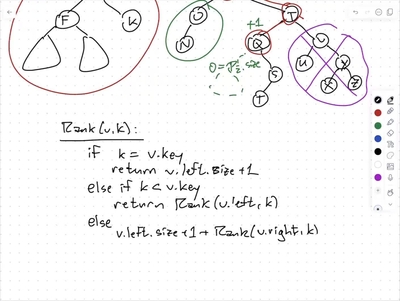 +1
F
K
O
N
T
Q
S
T
0 = p.size
v
u
y
x
z
Rank(v,k):
if k = v.key
return v.left.size+1
else if k < v.key
return Rank(v.left, k)
else
v.left.size+1 + Rank(v.right, k)